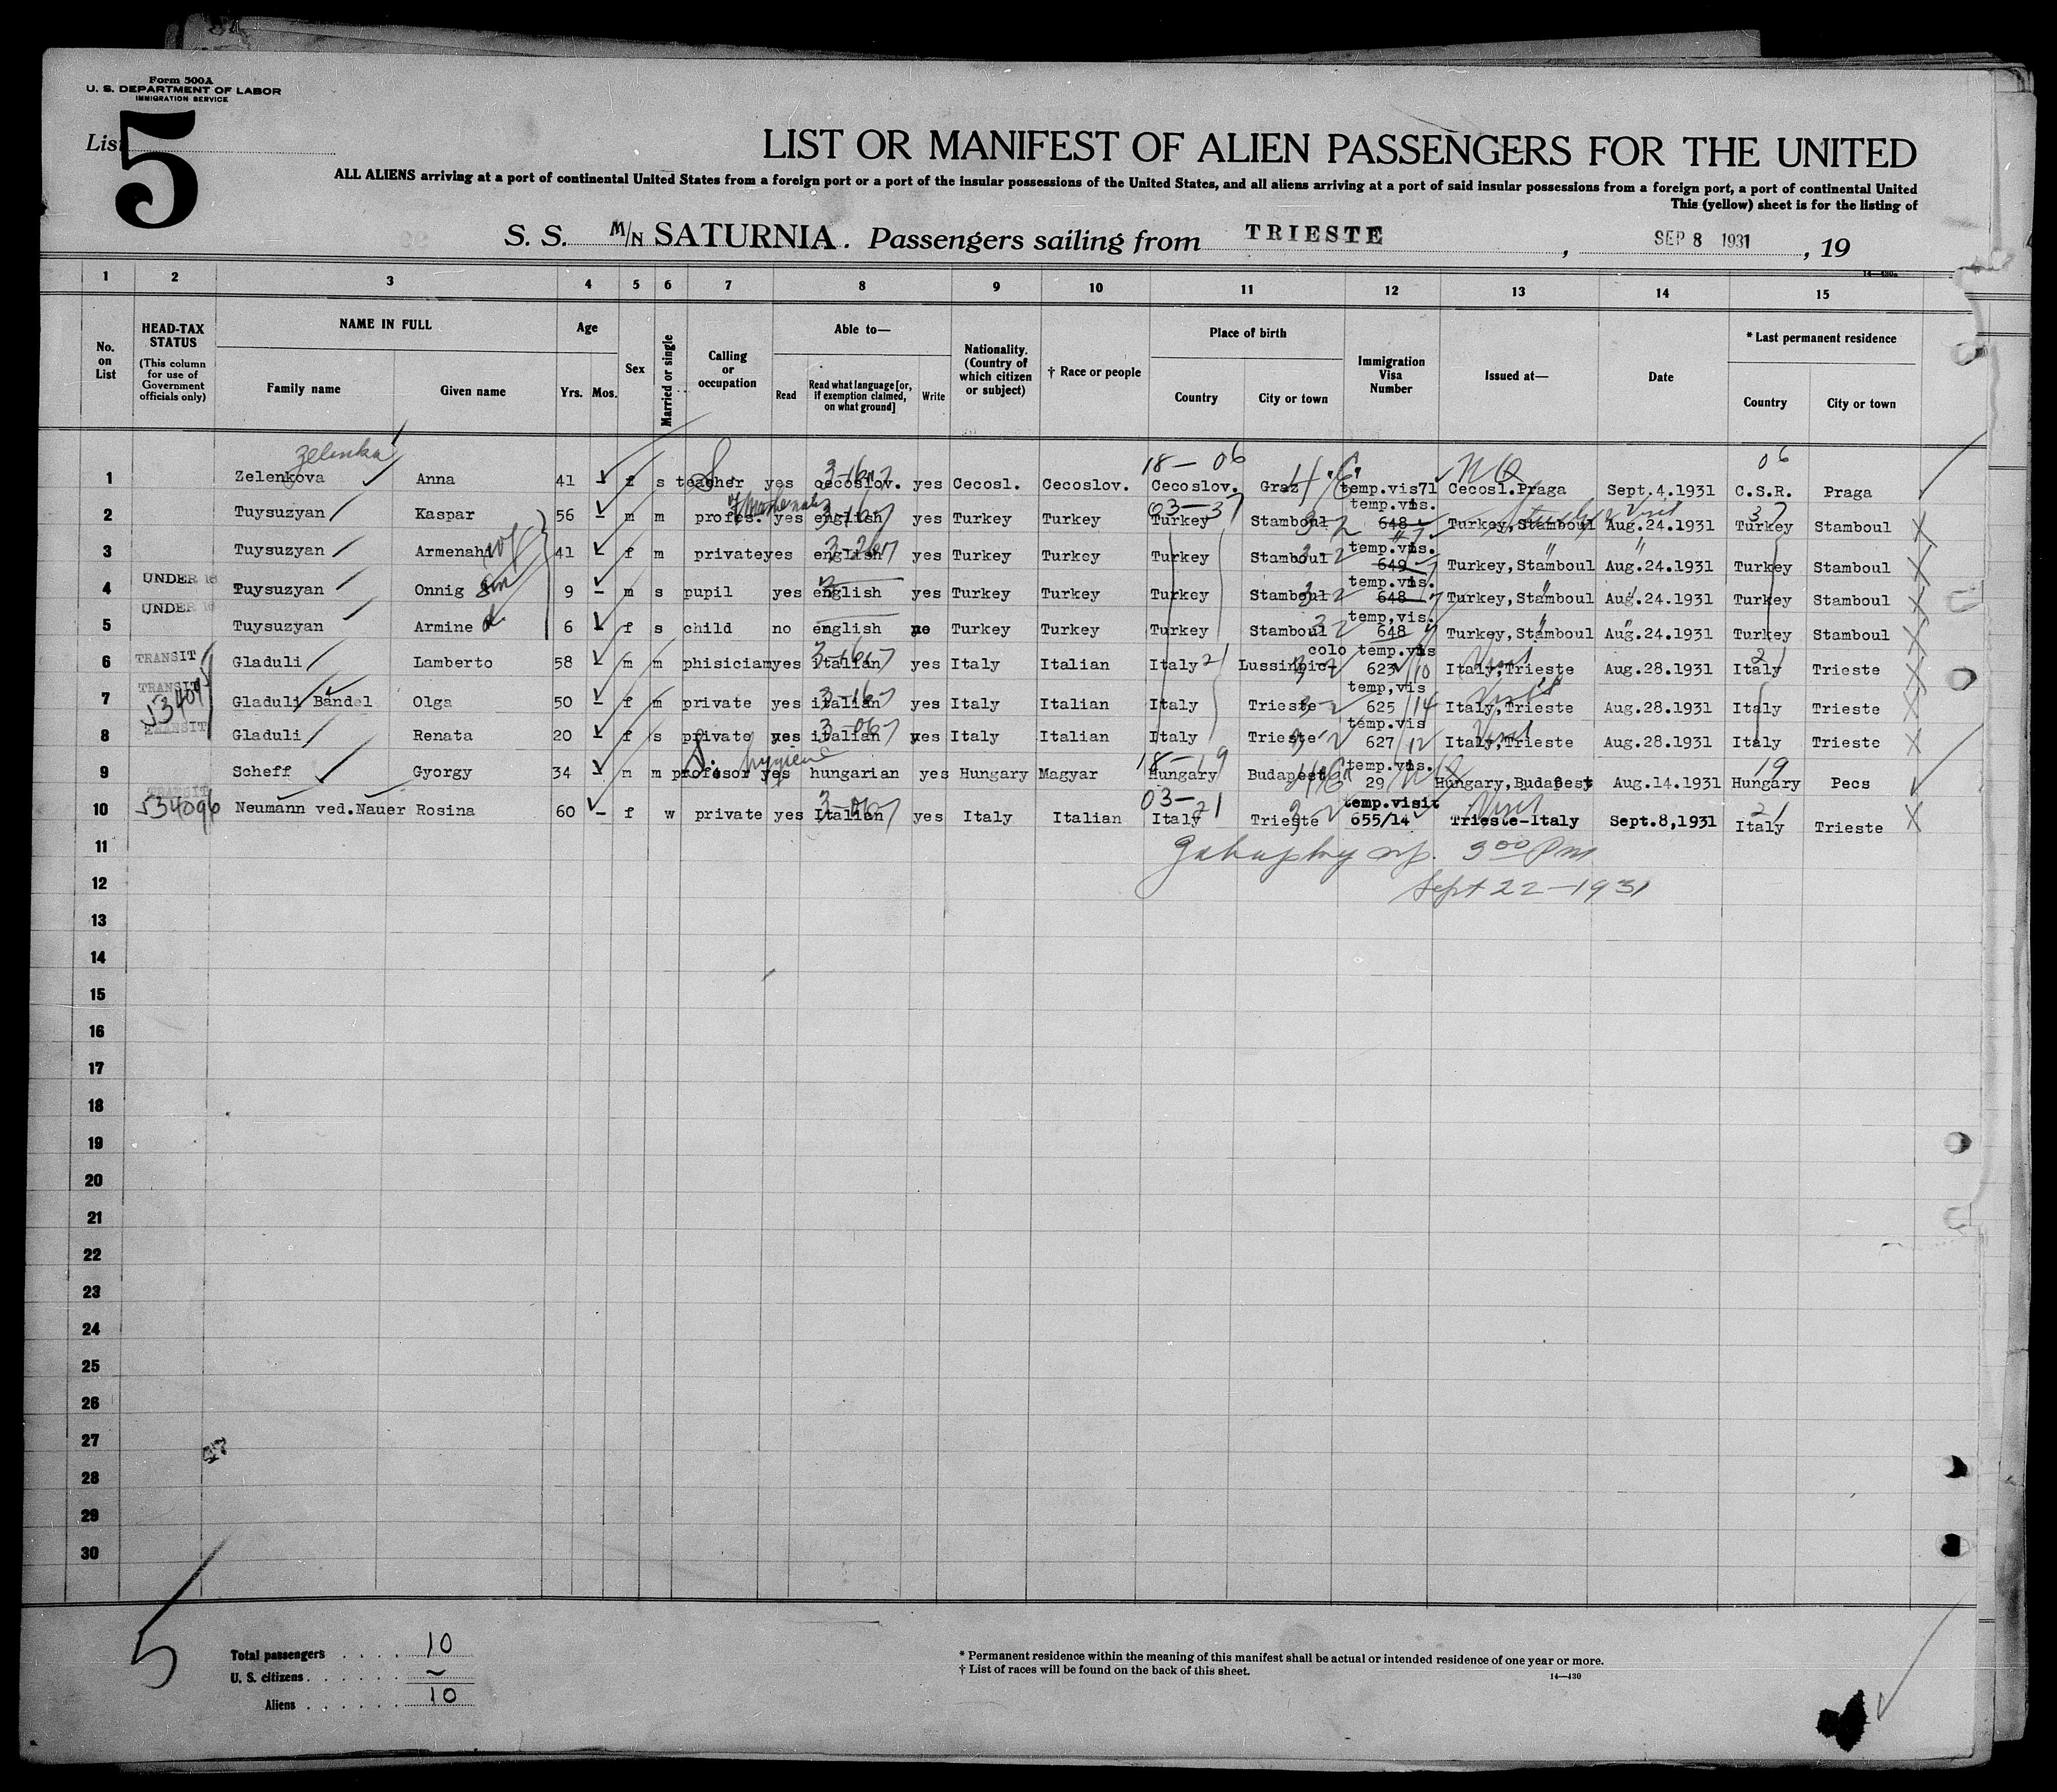 Form 500A
U. S. DEPARTMENT OF LABOR
IMMIGRATION SERVICE
List 5
LIST OR MANIFEST OF ALIEN PASSENGERS FOR THE UNITED
ALL ALIENS arriving at a port of continental United States from a foreign port or a port of the insular possessions of the United States, and all aliens arriving at a port of said insular possessions from a foreign port, a port of continental United
This (yellow) sheet is for the listing of
S. S. M/N SATURNIA. Passengers sailing from TRIESTE, SEP 8 1931, 19
14—430a
1 2 3 4 5 6 7 8 9 10 11 12 13 14 15
No. on List
HEAD-TAX STATUS
(This column for use of Government officials only)
NAME IN FULL
Family name Given name
Age
Yrs. Mos.
Sex
Married or single
Calling or occupation
Able to—
Read Read what language [or, if exemption claimed, on what ground] Write
Nationality. (Country of which citizen or subject)
† Race or people
Place of birth
Country City or town
Immigration Visa Number
Issued at—
Date
* Last permanent residence
Country City or town
Zelenka 18— 06 06
1 Zelenkova Anna 41 – f s teacher yes cecoslov. yes Cecosl. Cecoslov. Cecoslov. Graz temp.vis71 Cecosl.Praga Sept.4.1931 C.S.R. Praga
03—37 37
2 Tuysuzyan Kaspar 56 – m m profes. yes english yes Turkey Turkey Turkey Stamboul temp.vis. 648 Turkey,Stamboul Aug.24.1931 Turkey Stamboul
3 Tuysuzyan Armenahi wf 41 – f m private yes english yes Turkey Turkey Turkey Stamboul temp.vis. 649 Turkey,Stamboul Aug.24.1931 Turkey Stamboul
4 UNDER 16 Tuysuzyan Onnig son 9 – m s pupil yes english yes Turkey Turkey Turkey Stamboul temp.vis. 648 Turkey,Stamboul Aug.24.1931 Turkey Stamboul
5 UNDER 16 Tuysuzyan Armine d. 6 – f s child no english no Turkey Turkey Turkey Stamboul temp,vis. 648 Turkey,Stamboul Aug.24.1931 Turkey Stamboul
6 TRANSIT Gladuli Lamberto 58 – m m phisiciam yes Italian yes Italy Italian Italy 21 Lussinpiccolo temp.vis 623/10 Italy,Trieste Visit Aug.28.1931 Italy 21 Trieste
7 TRANSIT Gladuli Bandel Olga 50 – f m private yes italian yes Italy Italian Italy Trieste temp,vis 625/14 Italy,Trieste Visit Aug.28.1931 Italy Trieste
8 TRANSIT Gladuli Renata 20 – f s private yes italian yes Italy Italian Italy Trieste temp.vis 627/12 Italy,Trieste Visit Aug.28.1931 Italy Trieste
hygiene 18—19 19
9 Scheff Gyorgy 34 – m m profesor yes hungarian yes Hungary Magyar Hungary Budapest temp.vis. 29 Hungary,Budapest Aug.14.1931 Hungary Pecs
10 TRANSIT 534096 Neumann ved.Nauer Rosina 60 – f w private yes Italian yes Italy Italian 03—21 Italy Trieste temp.visit 655/14 Visit Trieste-Italy Sept.8,1931 21 Italy Trieste
11 3 00 Pm
12 Sept 22—1931
13
14
15
16
17
18
19
20
21
22
23
24
25
26
27
28
29
30
5
Total passengers . . . . 10
U. S. citizens . . . . . . –
Aliens . . . . . . 10
* Permanent residence within the meaning of this manifest shall be actual or intended residence of one year or more.
† List of races will be found on the back of this sheet.
14—430